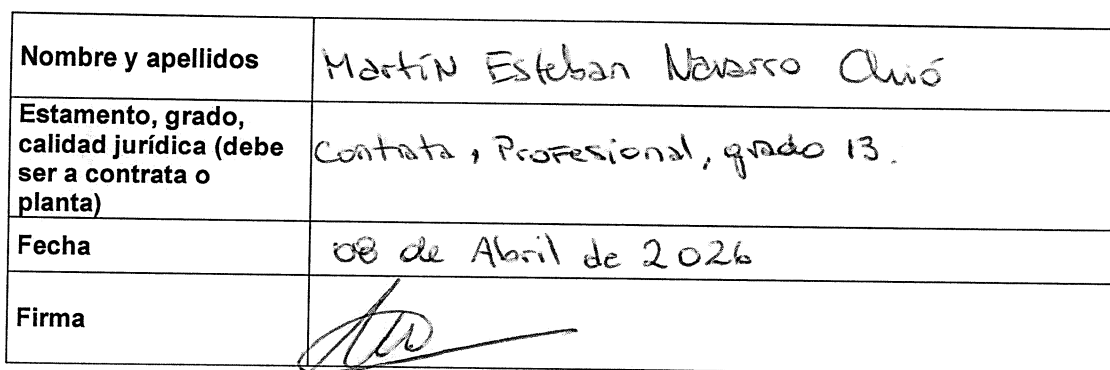 Nombre y apellidos
Martín Esteban Navarro
Estamento, grado,
calidad jurídica (debe
ser a contrata o
planta)
Contrata, Profesional, grado 13.
Fecha
08 de Abril de 2026
Firma